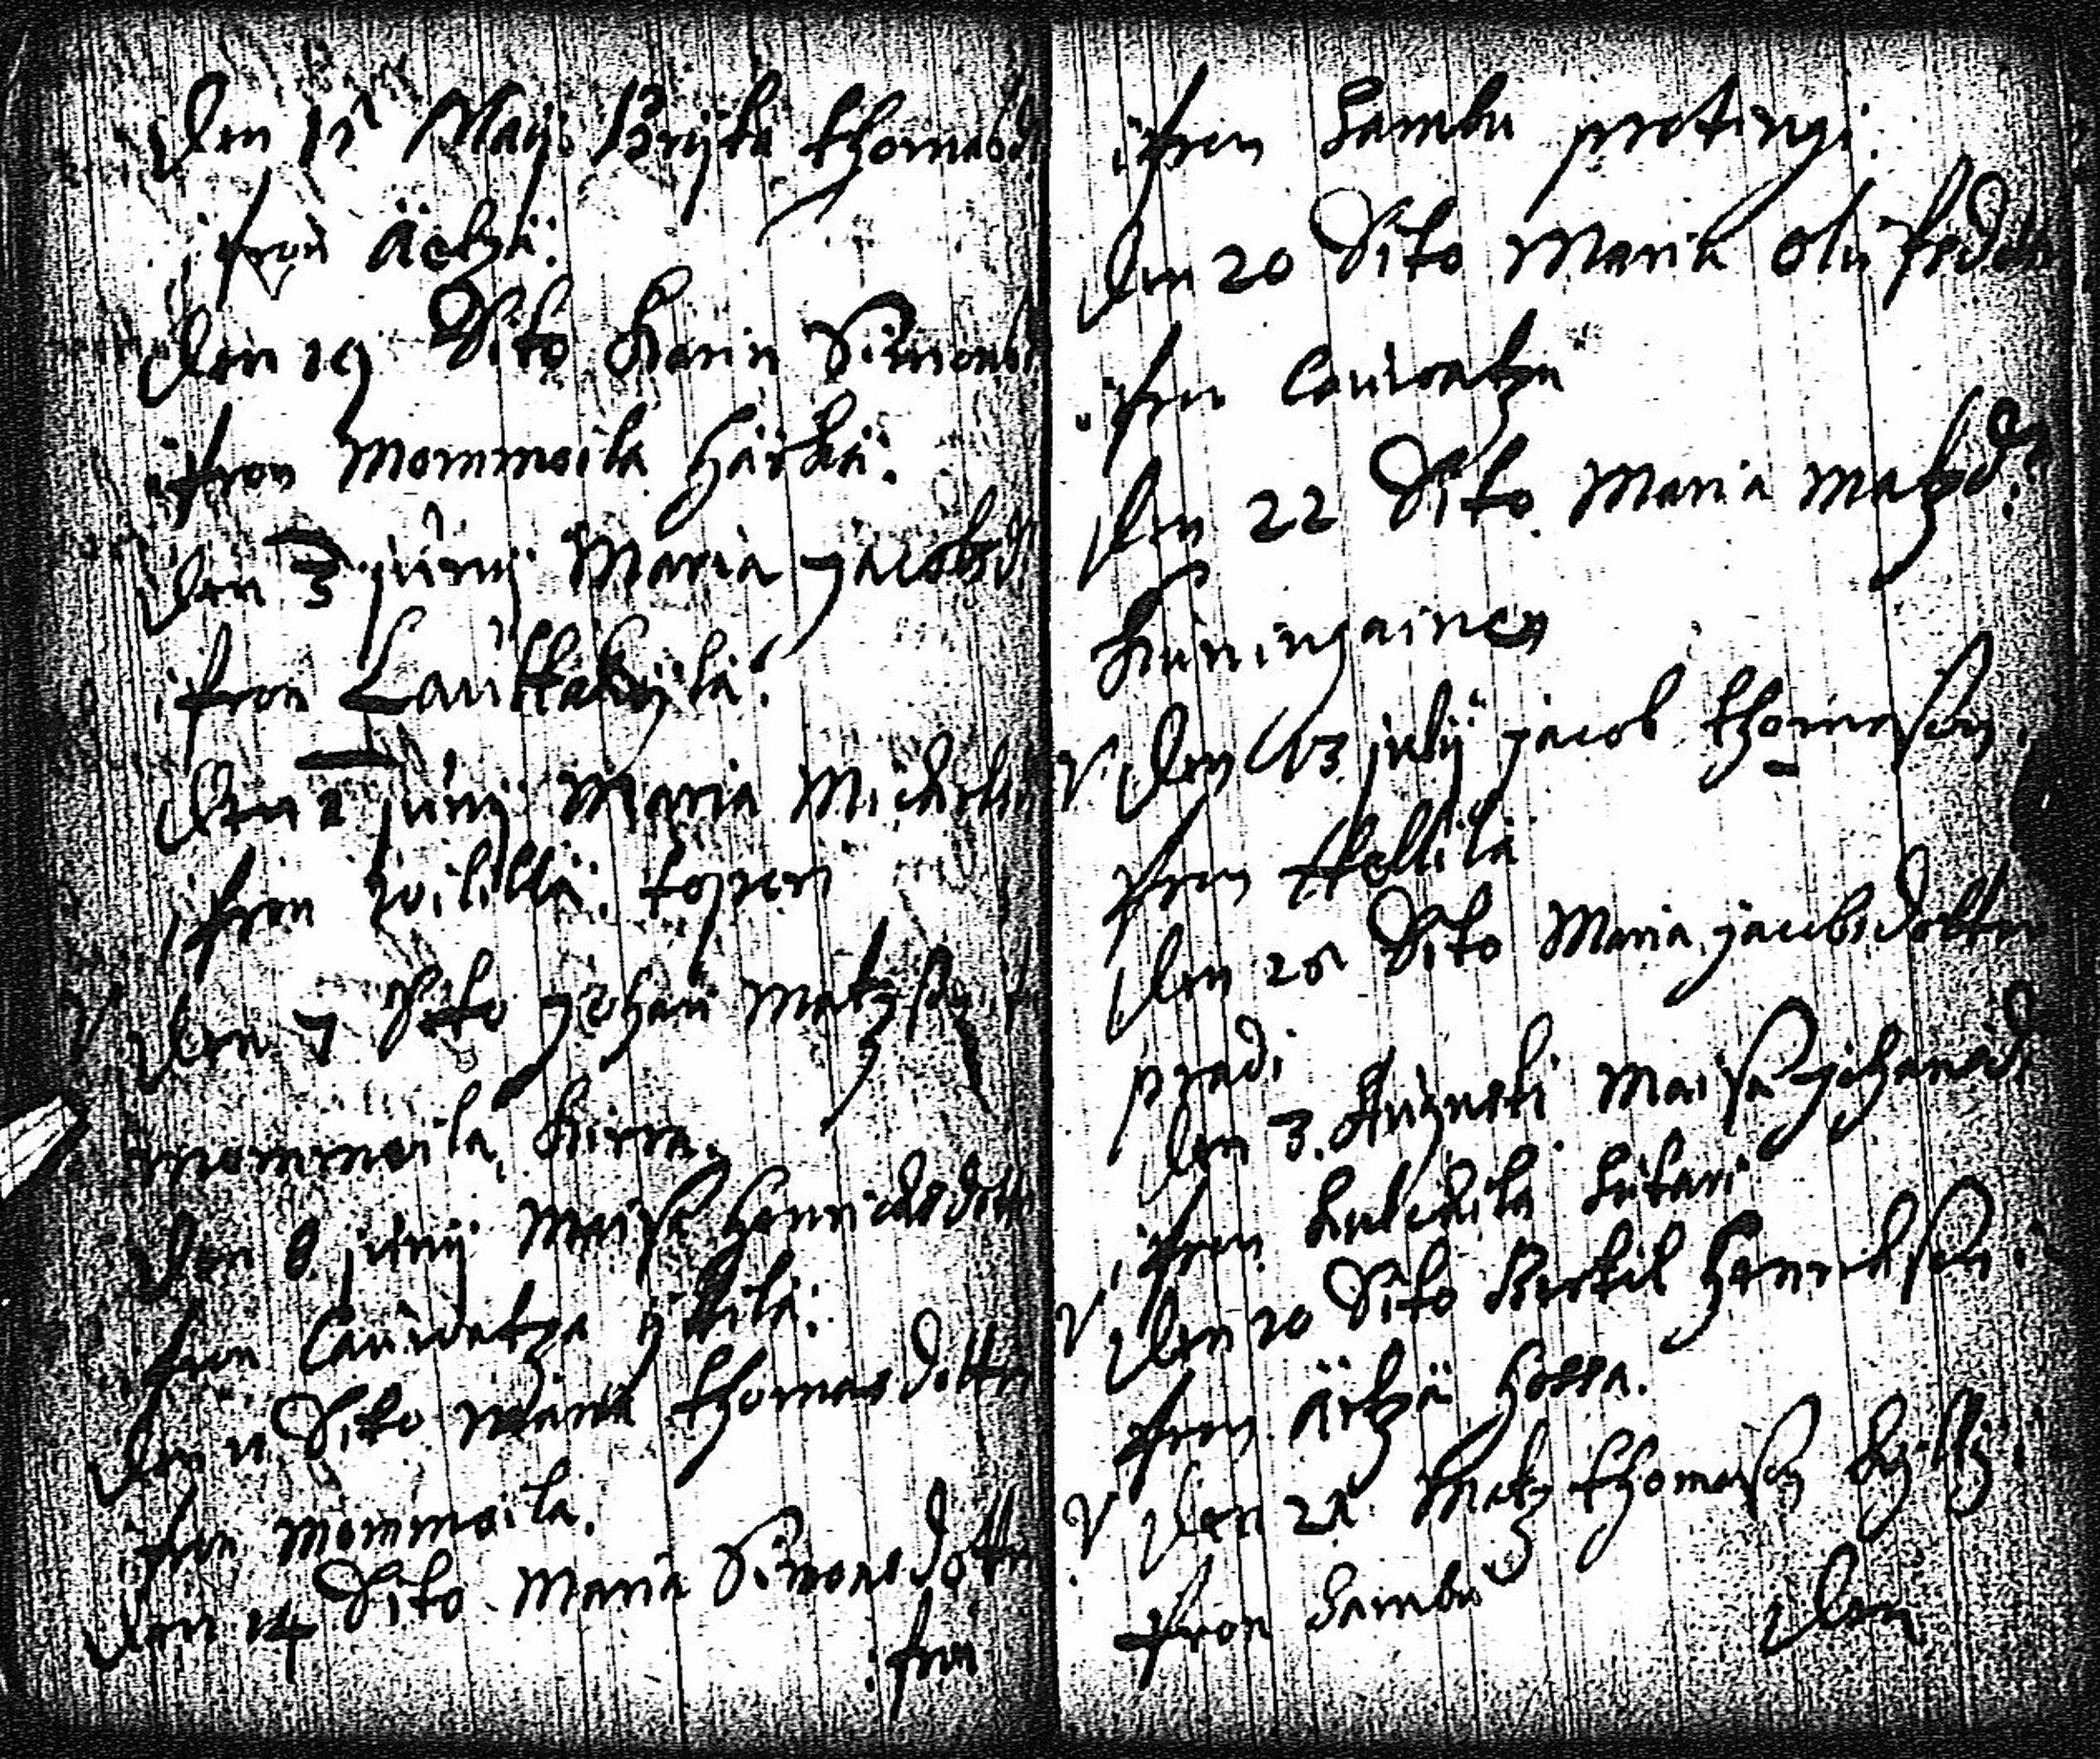 Den Maij Brijta thomasd
ifron Äetzä:
Den 19 Dito Karin Simonsd
ifron Mommoila Härkä.
Den 3 junij Maria jacobsd
ifron Lauttakylä.
Den 2 junij Maria Michels
ifron
Den 7 Dito johan Matzson
mommoila, Kirra.
Den 8 junij Maisa Henrichsdotter
ifron Cauvatza ykilä:
Den 11 Dito Maria thomasdotter
ifron mommoila.
Den 14 Dito Maria Simonsdotter
ifrå
ifron Sambu protingi.
Den 20 Dito Maria Olufsdott
ifron Cauvatza
Den 22 Dito Maria Matzd:
Kuningainen
V Den julij jacob thomason
fron
Den Dito Maria jacobsdotter
pradi
Den 3. Augusti Maisa johansd
ifron
V Den 20 Dito Bertil Henrichson i
fron Äetzä
V Den 21 Matz thomason
fron Sambu
Den